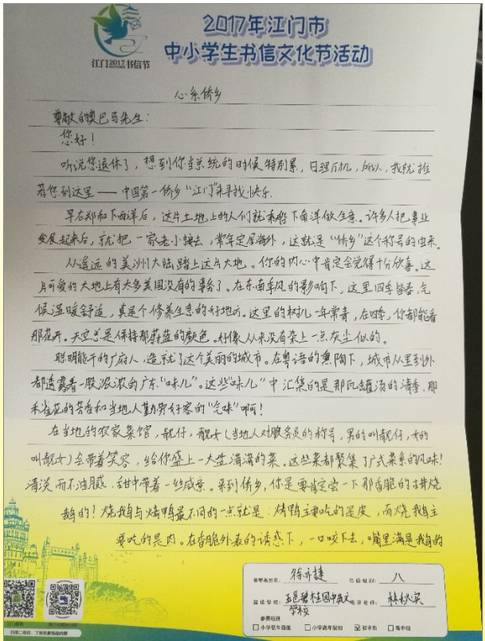 2017年江门市
中小学生书信文化节活动
江门2017书信节
心系侨乡
尊敬的奥巴马先生:
您好!
听说您退休了,想到你当总统的时候特别累,日理万机,所以,我就推
荐您到这里——中国第一侨乡“江门”来寻找快乐.
早在郑和下西洋后,这片土地上的人们就来往下南洋做生意。许多人把事业
发展起来后,就把一家老小接去,常年定居海外,这就是“侨乡”这个称号的由来。
从遥远的美洲大陆踏上这片大地。你的内心中肯定会觉得十分欣喜。这
片可爱的大地上有太多美国没有的事物了。在东南季风的影响下,这里四季皆春,气
候温暖舒适,真是个修养生息的好地方。这里的树木一年常青,在四季,你都能看
那花开。天空总是保持那蔚蓝的颜色。好像从来没有染上一点灰尘似的。
聪明能干的广府人,造就了这个美丽的城市。在粤语的熏陶下,城市从里到外
都透露着一股浓浓的广东“味儿”。这些“味儿”中汇集的是那瓦罐汤的清香,那
花的芳香和当地人勤劳好客的“人味”啊!
在当地的农家菜馆,靓仔,靓女(当地人对服务员的称号,男的叫靓仔,女的
叫靓女)会带着笑容,给你盛上一大盘满满的菜。这些菜都聚集了广式菜系的风味!
清淡而不油腻,甜中带着一丝咸意。来到侨乡,你是要肯定尝一下那香脆的古井烧
鹅的!烧鹅与烤鸭最不同的一点就是:烤鸭主要吃的是皮,而烧鹅主
要吃的是肉。在香脆外表的诱惑下,一口咬下去,嘴里满是我的
参赛组别
小学低年级组
小学高年级组
初中组
高中组
八
学校